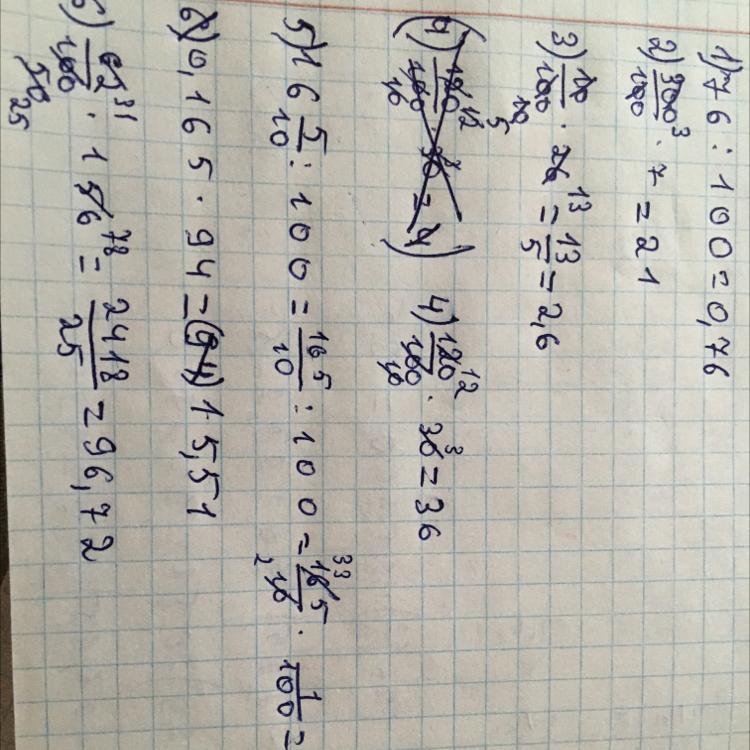 1) 76 : 100 = 0,76
2) 300/100 3 · 7 = 21
3) 10/100 10 · 26 13 = 13/5 = 2,6
4) 120/100 12 10 · 30 3 = 36
5) 16 5/10 : 100 = 165/10 : 100 = 165/10 33 2 · 1/100 =
6) 0,165 · 94 = (94) 15,51
6) 62/100 31 50 25 · 156 78 = 2418/25 = 96,72